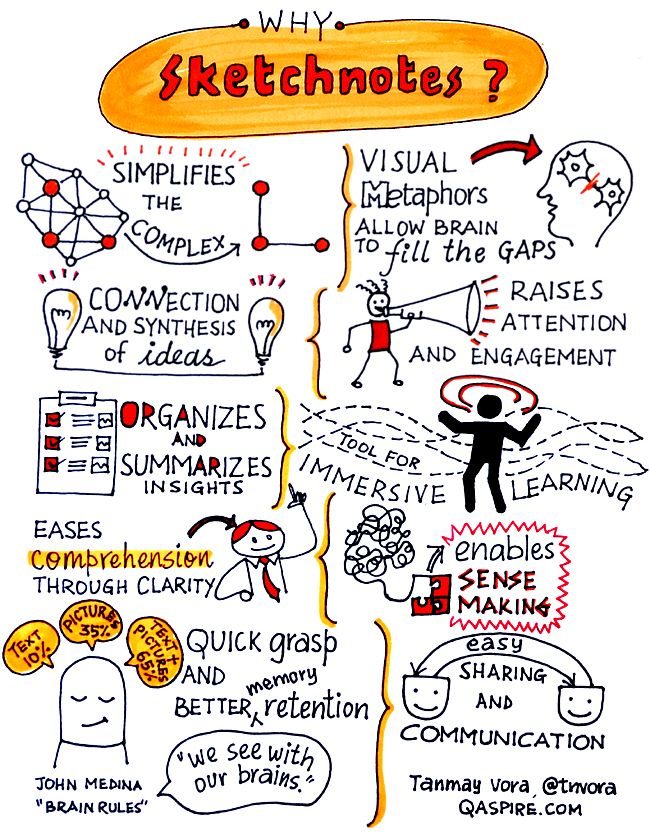 WHY
Sketchnotes?
SIMPLIFIES
THE
COMPLEX
VISUAL
Metaphors
ALLOW BRAIN
TO fill the GAPS
CONNECTION
AND SYNTHESIS
of ideas
RAISES
ATTENTION
AND ENGAGEMENT
ORGANIZES
AND
SUMMARIZES
INSIGHTS
TOOL FOR
IMMERSIVE LEARNING
EASES
comprehension
THROUGH CLARITY
enables
SENSE
MAKING
TEXT
10%
PICTURES
35%
TEXT +
PICTURES
65%
QUICK grasp
AND
BETTER memory retention
"We see with
our brains."
JOHN MEDINA
"BRAIN RULES"
easy
SHARING
AND
COMMUNICATION
Tanmay Vora, @tnvora
QASPIRE.COM